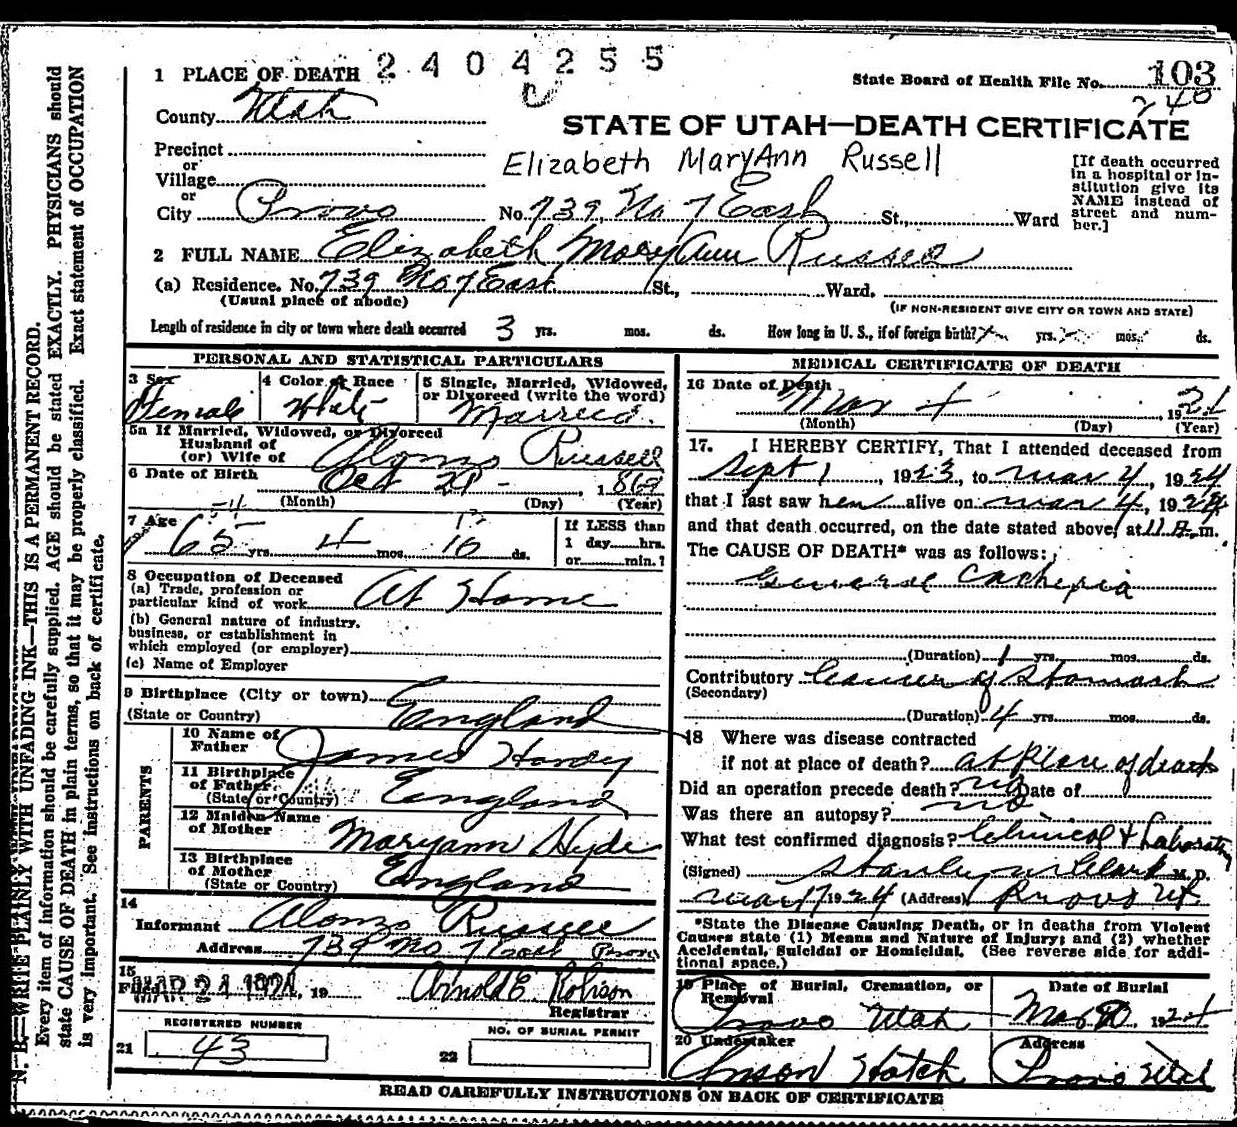 1 PLACE OF DEATH 2404255
State Board of Health File No. 103
240
County Utah
STATE OF UTAH—DEATH CERTIFICATE
Precinct
or
Village
or
City Provo
Elizabeth MaryAnn Russell
No. 739 No 7 East St., Ward
[If death occurred in a hospital or institution give its NAME instead of street and number.]
2 FULL NAME Elizabeth MaryAnn Russell
(a) Residence. No. 739 No 7 East St., Ward.
(Usual place of abode)
(IF NON-RESIDENT GIVE CITY OR TOWN AND STATE)
Length of residence in city or town where death occurred 3 yrs. mos. ds. How long in U. S., if of foreign birth? yrs. mos. ds.
PERSONAL AND STATISTICAL PARTICULARS
3 Sex Female
4 Color or Race White
5 Single, Married, Widowed, or Divorced (write the word) Married
5a If Married, Widowed, or Divorced
Husband of
(or) Wife of Alonzo Russell
6 Date of Birth Oct 1
(Month) (Day) (Year)
7 Age 65 yrs. 4 mos. 16 ds.
If LESS than
1 day......hrs.
or......min.?
8 Occupation of Deceased
(a) Trade, profession or
particular kind of work At Home
(b) General nature of industry,
business, or establishment in
which employed (or employer)
(c) Name of Employer
9 Birthplace (City or town)
(State or Country) England
PARENTS
10 Name of
Father James Hardy
11 Birthplace
of Father
(State or Country) England
12 Maiden Name
of Mother Maryann Hyde
13 Birthplace
of Mother
(State or Country) England
14
Informant Alonzo Russell
Address 739 No 7 East Provo
15
Filed MAR 21 1924, 19 Arnold E Robison
Registrar
REGISTERED NUMBER
21 43
NO. OF BURIAL PERMIT
22
MEDICAL CERTIFICATE OF DEATH
16 Date of Death
Mar 4, 19
(Month) (Day) (Year)
17. I HEREBY CERTIFY, That I attended deceased from
Sept 1, 1923, to Mar 4, 1924
that I last saw her alive on Mar 4, 1924,
and that death occurred, on the date stated above, at 11 m.
The CAUSE OF DEATH* was as follows:
General Cachexia
(Duration) 1 yrs. mos. ds.
Contributory Cancer of Stomach
(Secondary)
(Duration) 4 yrs. mos. ds.
18 Where was disease contracted
if not at place of death? at place of death
Did an operation precede death? no Date of
Was there an autopsy? no
What test confirmed diagnosis? Clinical & Laboratory
(Signed) Stanley M Clark M. D.
1924 (Address) Provo Ut.
*State the Disease Causing Death, or in deaths from Violent
Causes state (1) Means and Nature of Injury; and (2) whether
Accidental, Suicidal or Homicidal. (See reverse side for addi-
tional space.)
19 Place of Burial, Cremation, or
Removal
Provo Utah
Date of Burial
Mar 20, 1924
20 Undertaker
Anson Hatch
Address
Provo Utah
READ CAREFULLY INSTRUCTIONS ON BACK OF CERTIFICATE
N. B.—WRITE PLAINLY WITH UNFADING INK—THIS IS A PERMANENT RECORD.
Every item of information should be carefully supplied. AGE should be stated EXACTLY. PHYSICIANS should
state CAUSE OF DEATH in plain terms, so that it may be properly classified. Exact statement of OCCUPATION
is very important. See instructions on back of certificate.